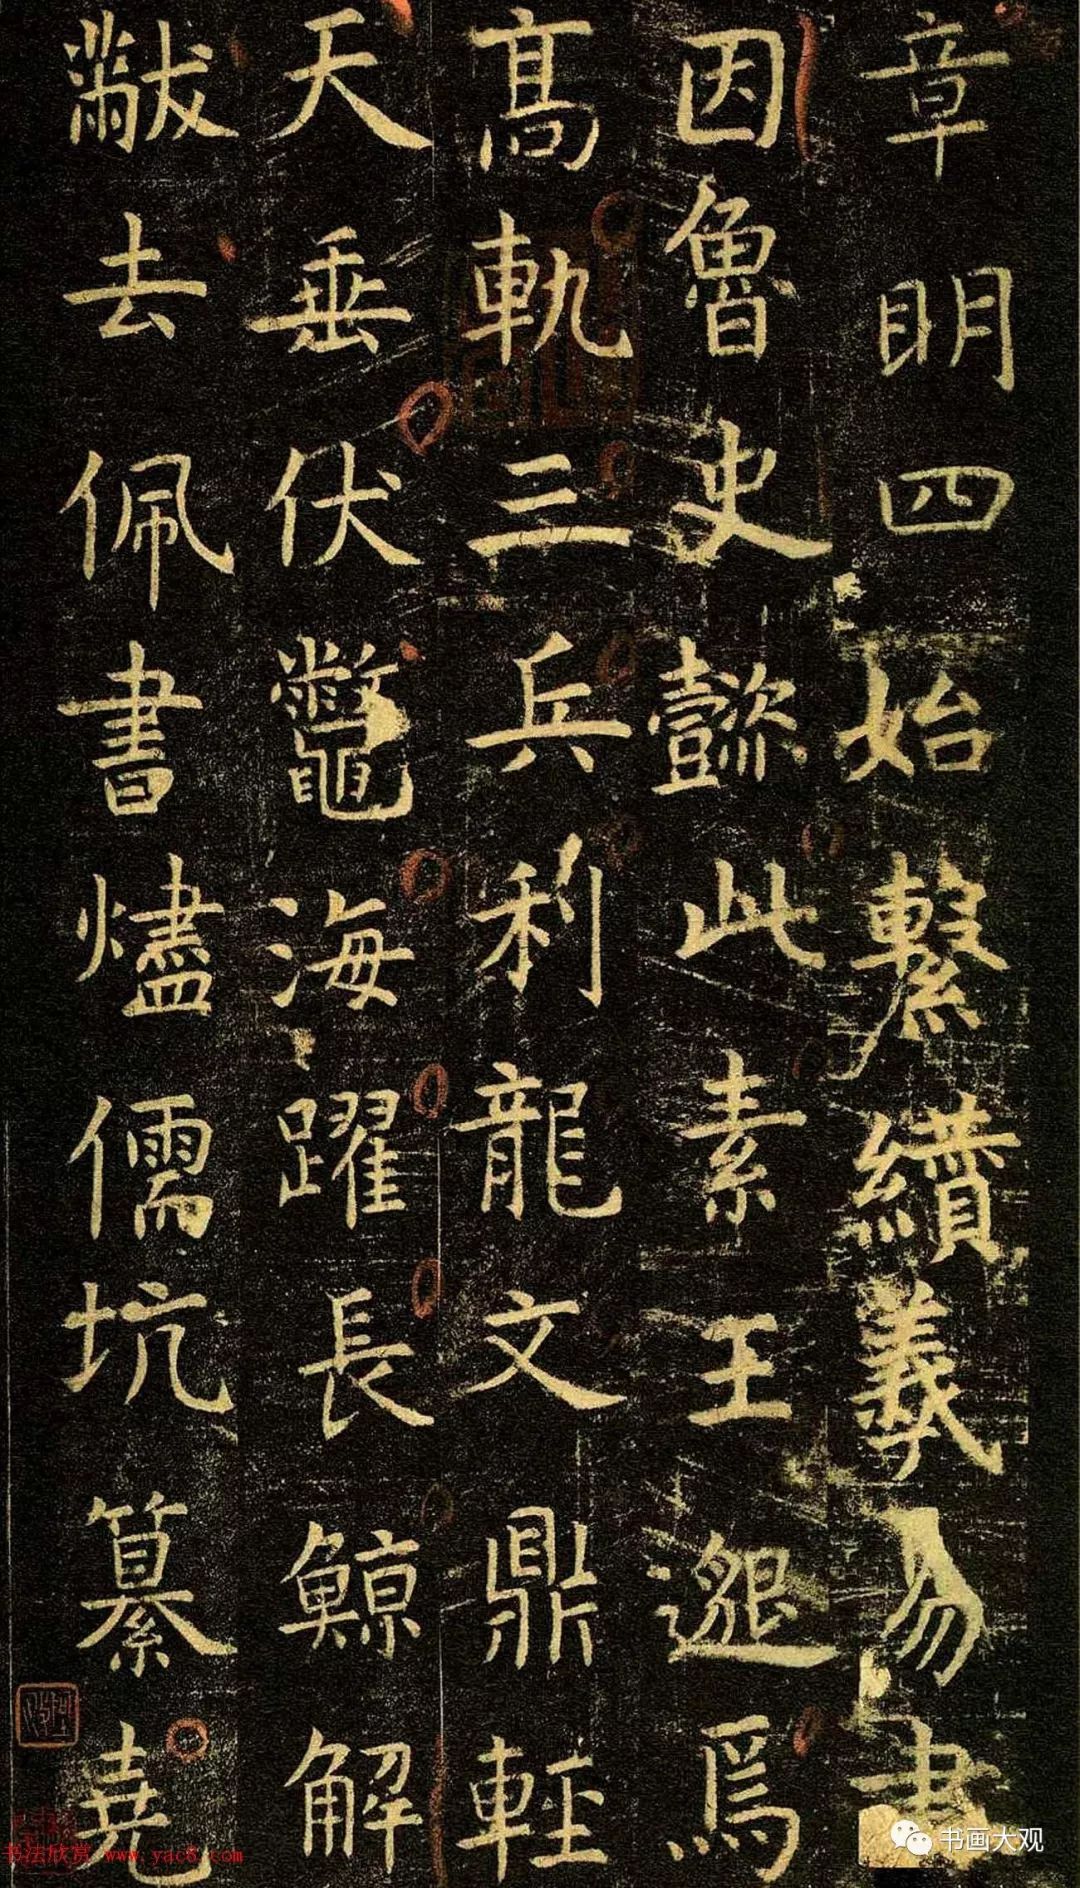 章明四始繫纘羲易書
因魯史懿此素王邈焉
髙軌三兵利龍文鼎輕
天垂伏鼈海躍長鯨解
黻去佩書燼儒坑纂堯
书法欣赏 www.yac8.com
书画大观